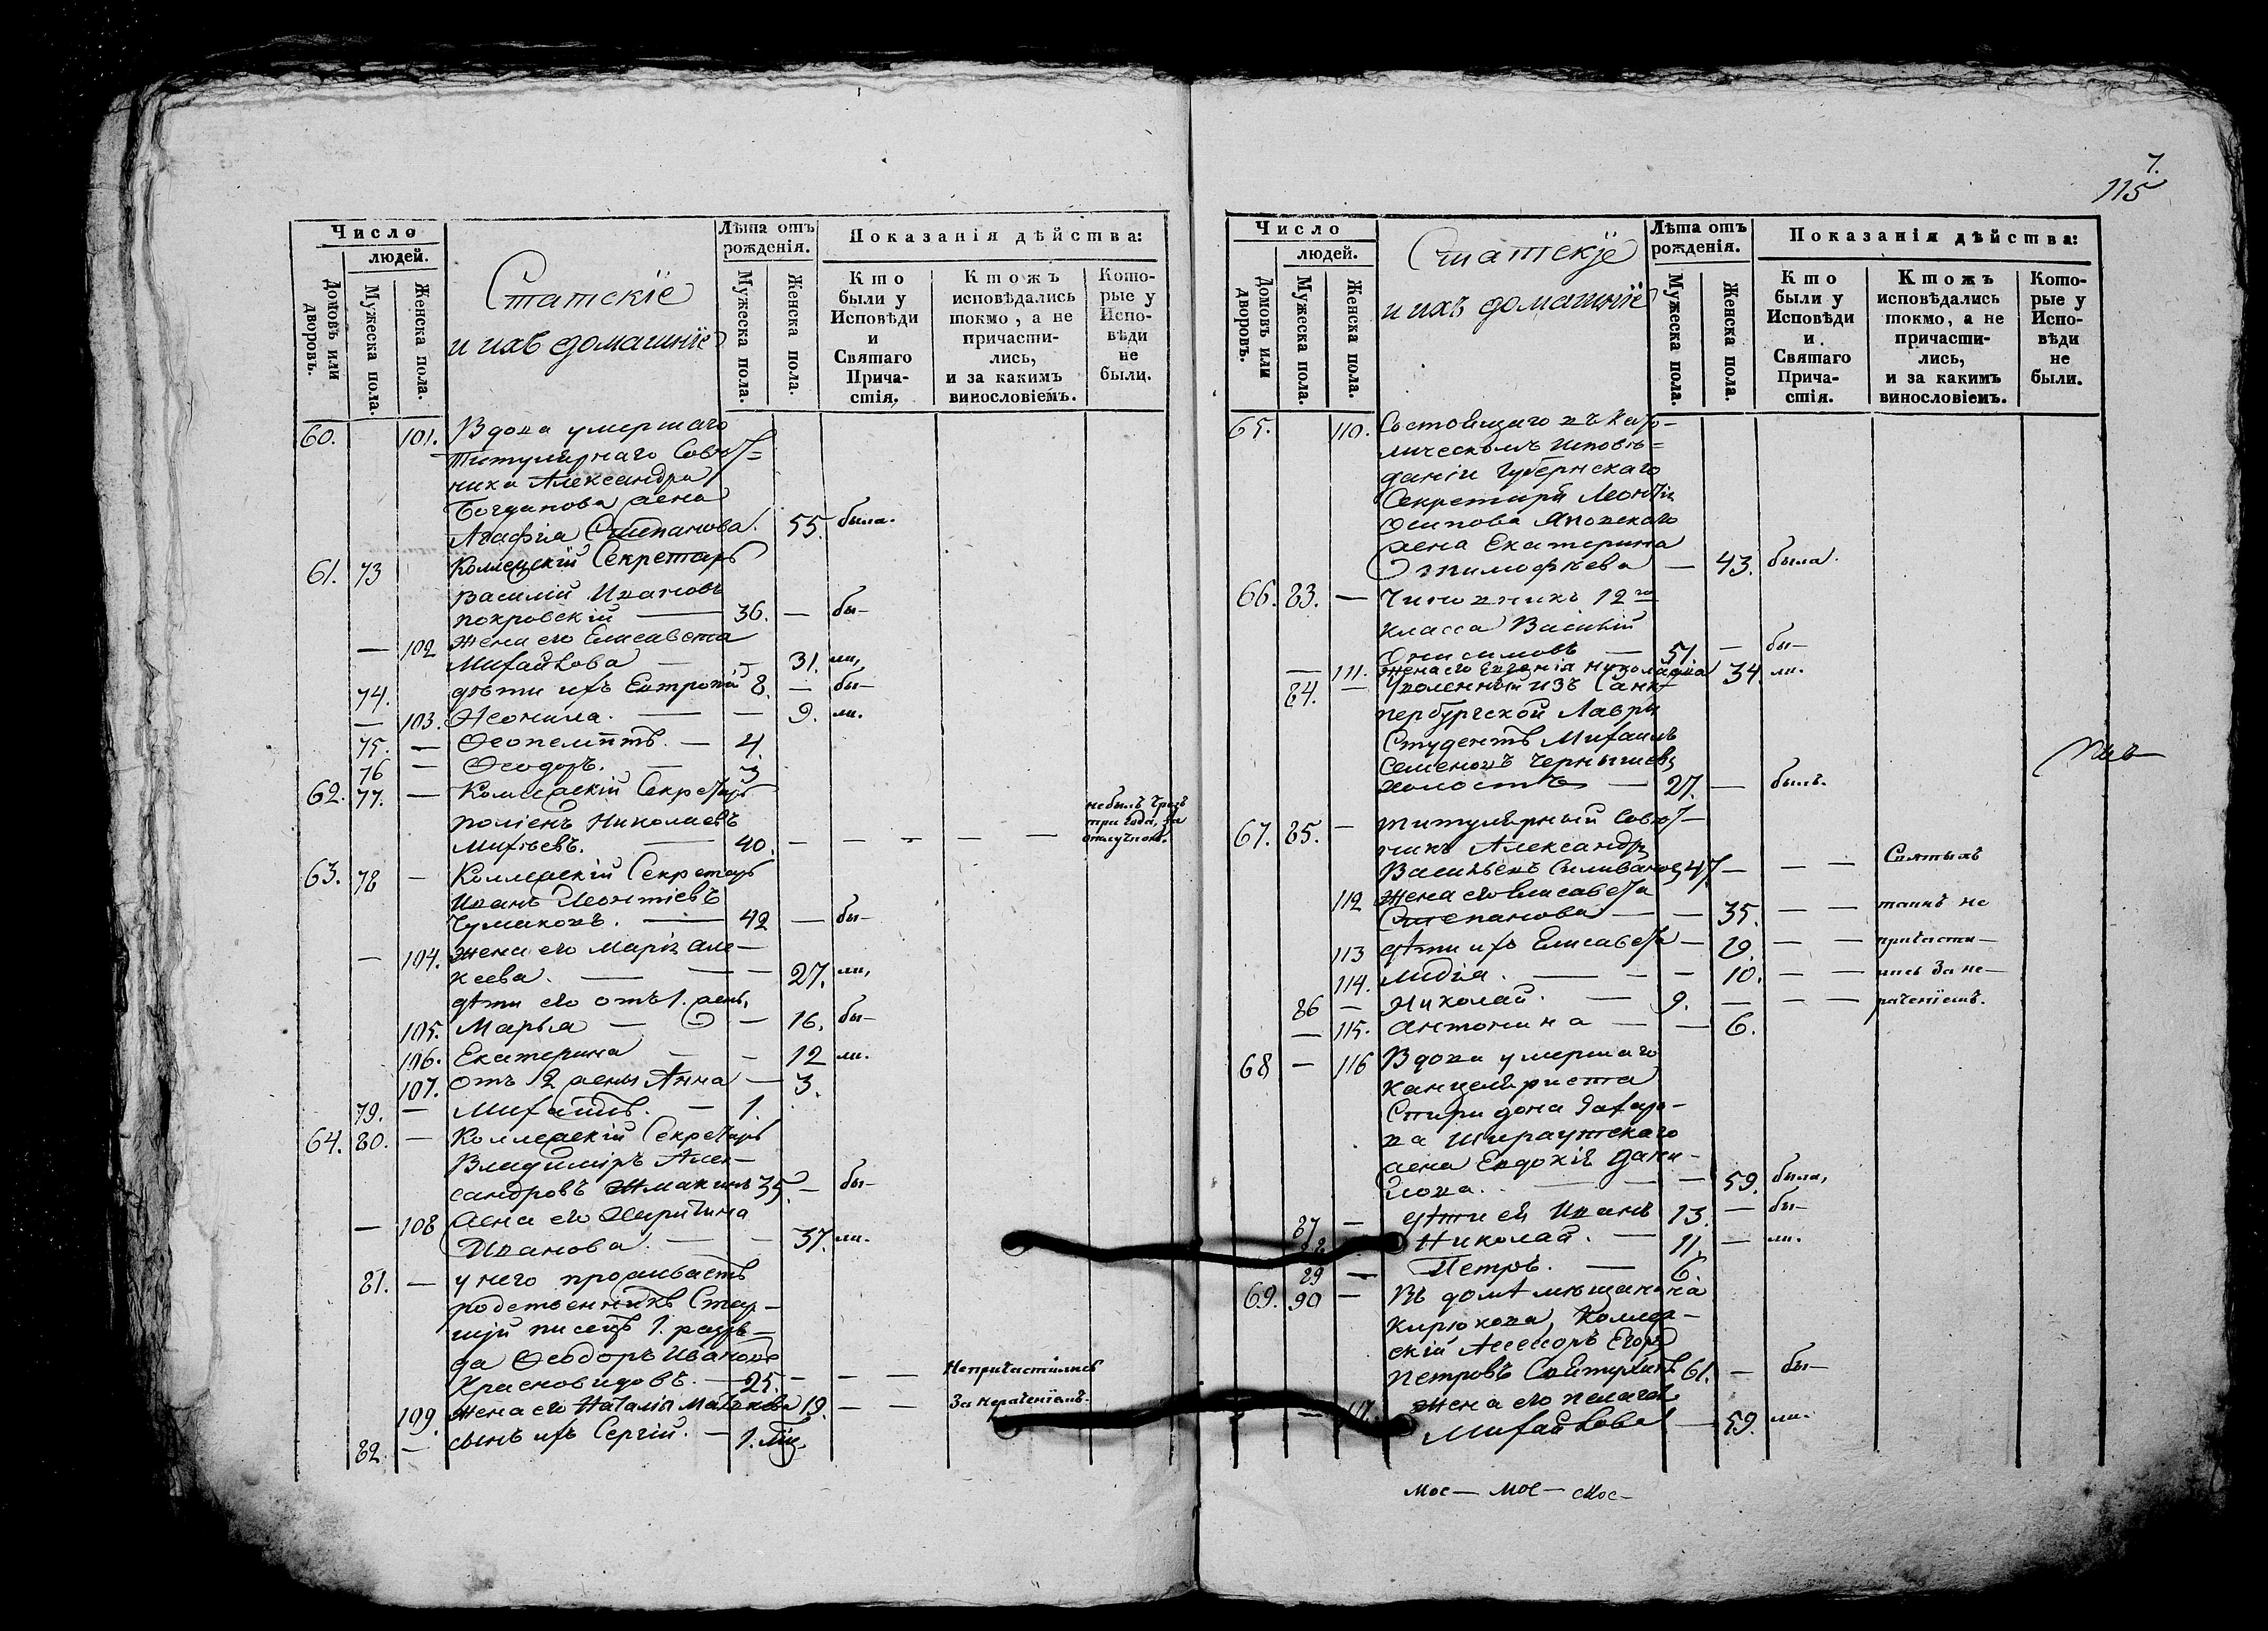 7.
115
Число
людей.
Домовъ или дворовъ.
Мужеска пола.
Женска пола.
Статскіе
и ихъ домашніе
Лѣта отъ
рожденія.
Мужеска пола.
Женска пола.
Показанія дѣйства:
Кто
были у
Исповѣди
и
Святаго
Прича-
стія.
Ктожъ
исповѣдались
токмо, а не
причасти-
лись,
и за какимъ
винословіемъ.
Кото-
рые у
Испо-
вѣди
не
были.
60. 101. Вдова умершаго
Титулярнаго Совѣт=
ника Александра
Богданова жена
Агафія Степанова. 55. была.
61. 73 Коллежскій Секретарь
Василій Ивановъ
Покровскій — 36. — бы—
— 102 Жена его Елисавета
Михайлова — — 31. ли,
74. дѣти ихъ Евтропій 8. — бы—
— 103. Неонила. — — 9. ли.
75. — Феопемптъ. — 4.
76 — Феодоръ. — 3
62. 77. — Коллежскій Секретарь
Николаевъ
Михѣевъ. — 40. — — — — —
небылъ чрезъ
три года, за
отлучкою.
63. 78 — Коллежскій Секретарь
Иванъ Леонтіевъ
Чумаковъ. — 42 — бы—
— 104. Жена его Марія Але—
ксева. — — — 27. ли,
дѣти его отъ 1. жены,
105. Марья — — — 16. бы—
106. Екатерина — — 12 ли.
107. Отъ 2 жены Анна — 3.
79. — Михаилъ. — 1.
64. 80. — Коллежскій Секретарь
Владиміръ Алек—
сандровъ Жмакинъ 35. — бы—
— 108 Жена его Харитина
Иванова. — — 37. ли.
81. — у него проживаетъ
родственникъ Стар—
шій писецъ 1. разря—
да Феодоръ Ивановъ
Красновидовъ. — 25. — — —
Непричастились
109. Жена его Наталія Матвѣева 19. — —
За нераченіемъ.
82. — сынъ ихъ Сергій. — 1. мѣс.
Число
людей.
Домовъ или дворовъ.
Мужеска пола.
Женска пола.
Статскіе
и ихъ домашніе
Лѣта отъ
рожденія.
Мужеска пола.
Женска пола.
Показанія дѣйства:
Кто
были у
Исповѣди
и
Святаго
Прича-
стія.
Ктожъ
исповѣдались
токмо, а не
причасти-
лись,
и за какимъ
винословіемъ.
Кото-
рые у
Испо-
вѣди
не
были.
65. 110. Состоящаго въ Като—
лическомъ исповѣ=
даніи Губернскаго
Секретаря Леонтія
Осипова Яновскаго
жена Екатерина
Тимофѣева — 43. была.
66. 83. — Чиновникъ 12го
класса Василій
Онисимовъ — 51. — бы—
— 111. Жена его Евгенія Николаева 34. ли.
84. — Уволенный изъ Санк—
пербургской Лавры
Студентъ Михаилъ
Семеновъ Чернышевъ
холостъ — 27. — былъ.
67. 85. — Титулярный Совѣт—
никъ Александръ
Васильевъ Силивановъ 47 — — — Святыхъ
112 Жена его Елисавета
Степанова — — 35. — — таинъ не
113 дѣти ихъ Елисавета — 19. — — причасти—
114. Лидія. — — — 10. — — лись за не—
86 — Николай. — 9. — — — раченіемъ.
— 115. Антонина — — 6.
68 — 116 Вдова умершаго
Канцеляриста
Спиридона Захаро—
ва
жена Евдокія Дани—
лова. — — — 59. была,
87 — дѣти ея Иванъ 13. — бы—
88 — Николай. — 11. — ли.
89 — Петръ. — 6.
69. 90 — Въ домѣ мѣщанина
Кирюкова, Коллеж—
скій Ассессоръ Егоръ
Петровъ 61. — бы—
— 117. Жена его Пелагея
Михайлова — 59. ли.
Мос— мос— мос—